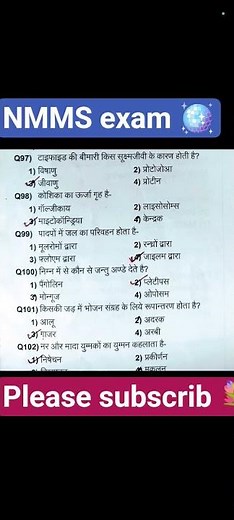 NMMS exam
Q97) टाइफाइड की बीमारी किस सूक्ष्मजीवी के कारण होती है?
1) विषाणु 2) प्रोटोजोआ
3) जीवाणु 4) प्रोटीन
Q98) कोशिका का ऊर्जा गृह है-
1) गॉल्जीकाय 2) लाइसोसोम्स
3) माइटोकॉन्ड्रिया 4) केन्द्रक
Q99) पादपों में जल का परिवहन होता है-
1) मूलरोमों द्वारा 2) रन्ध्रों द्वारा
3) फ्लोएम द्वारा 4) जाइलम द्वारा
Q100) निम्न में से कौन से जन्तु अण्डे देते है?
1) पैंगोलिन 2) प्लेटीपस
3) मोन्गूज 4) ओपोसम
Q101) किसकी जड़ में भोजन संग्रह के लिये रूपान्तरण होता है?
1) आलू 2) अदरक
3) गाजर 4) अरबी
Q102) नर और मादा युग्मकों का युग्मन कहलाता है-
1) निषेचन 2) प्रकीर्णन
Please subscrib